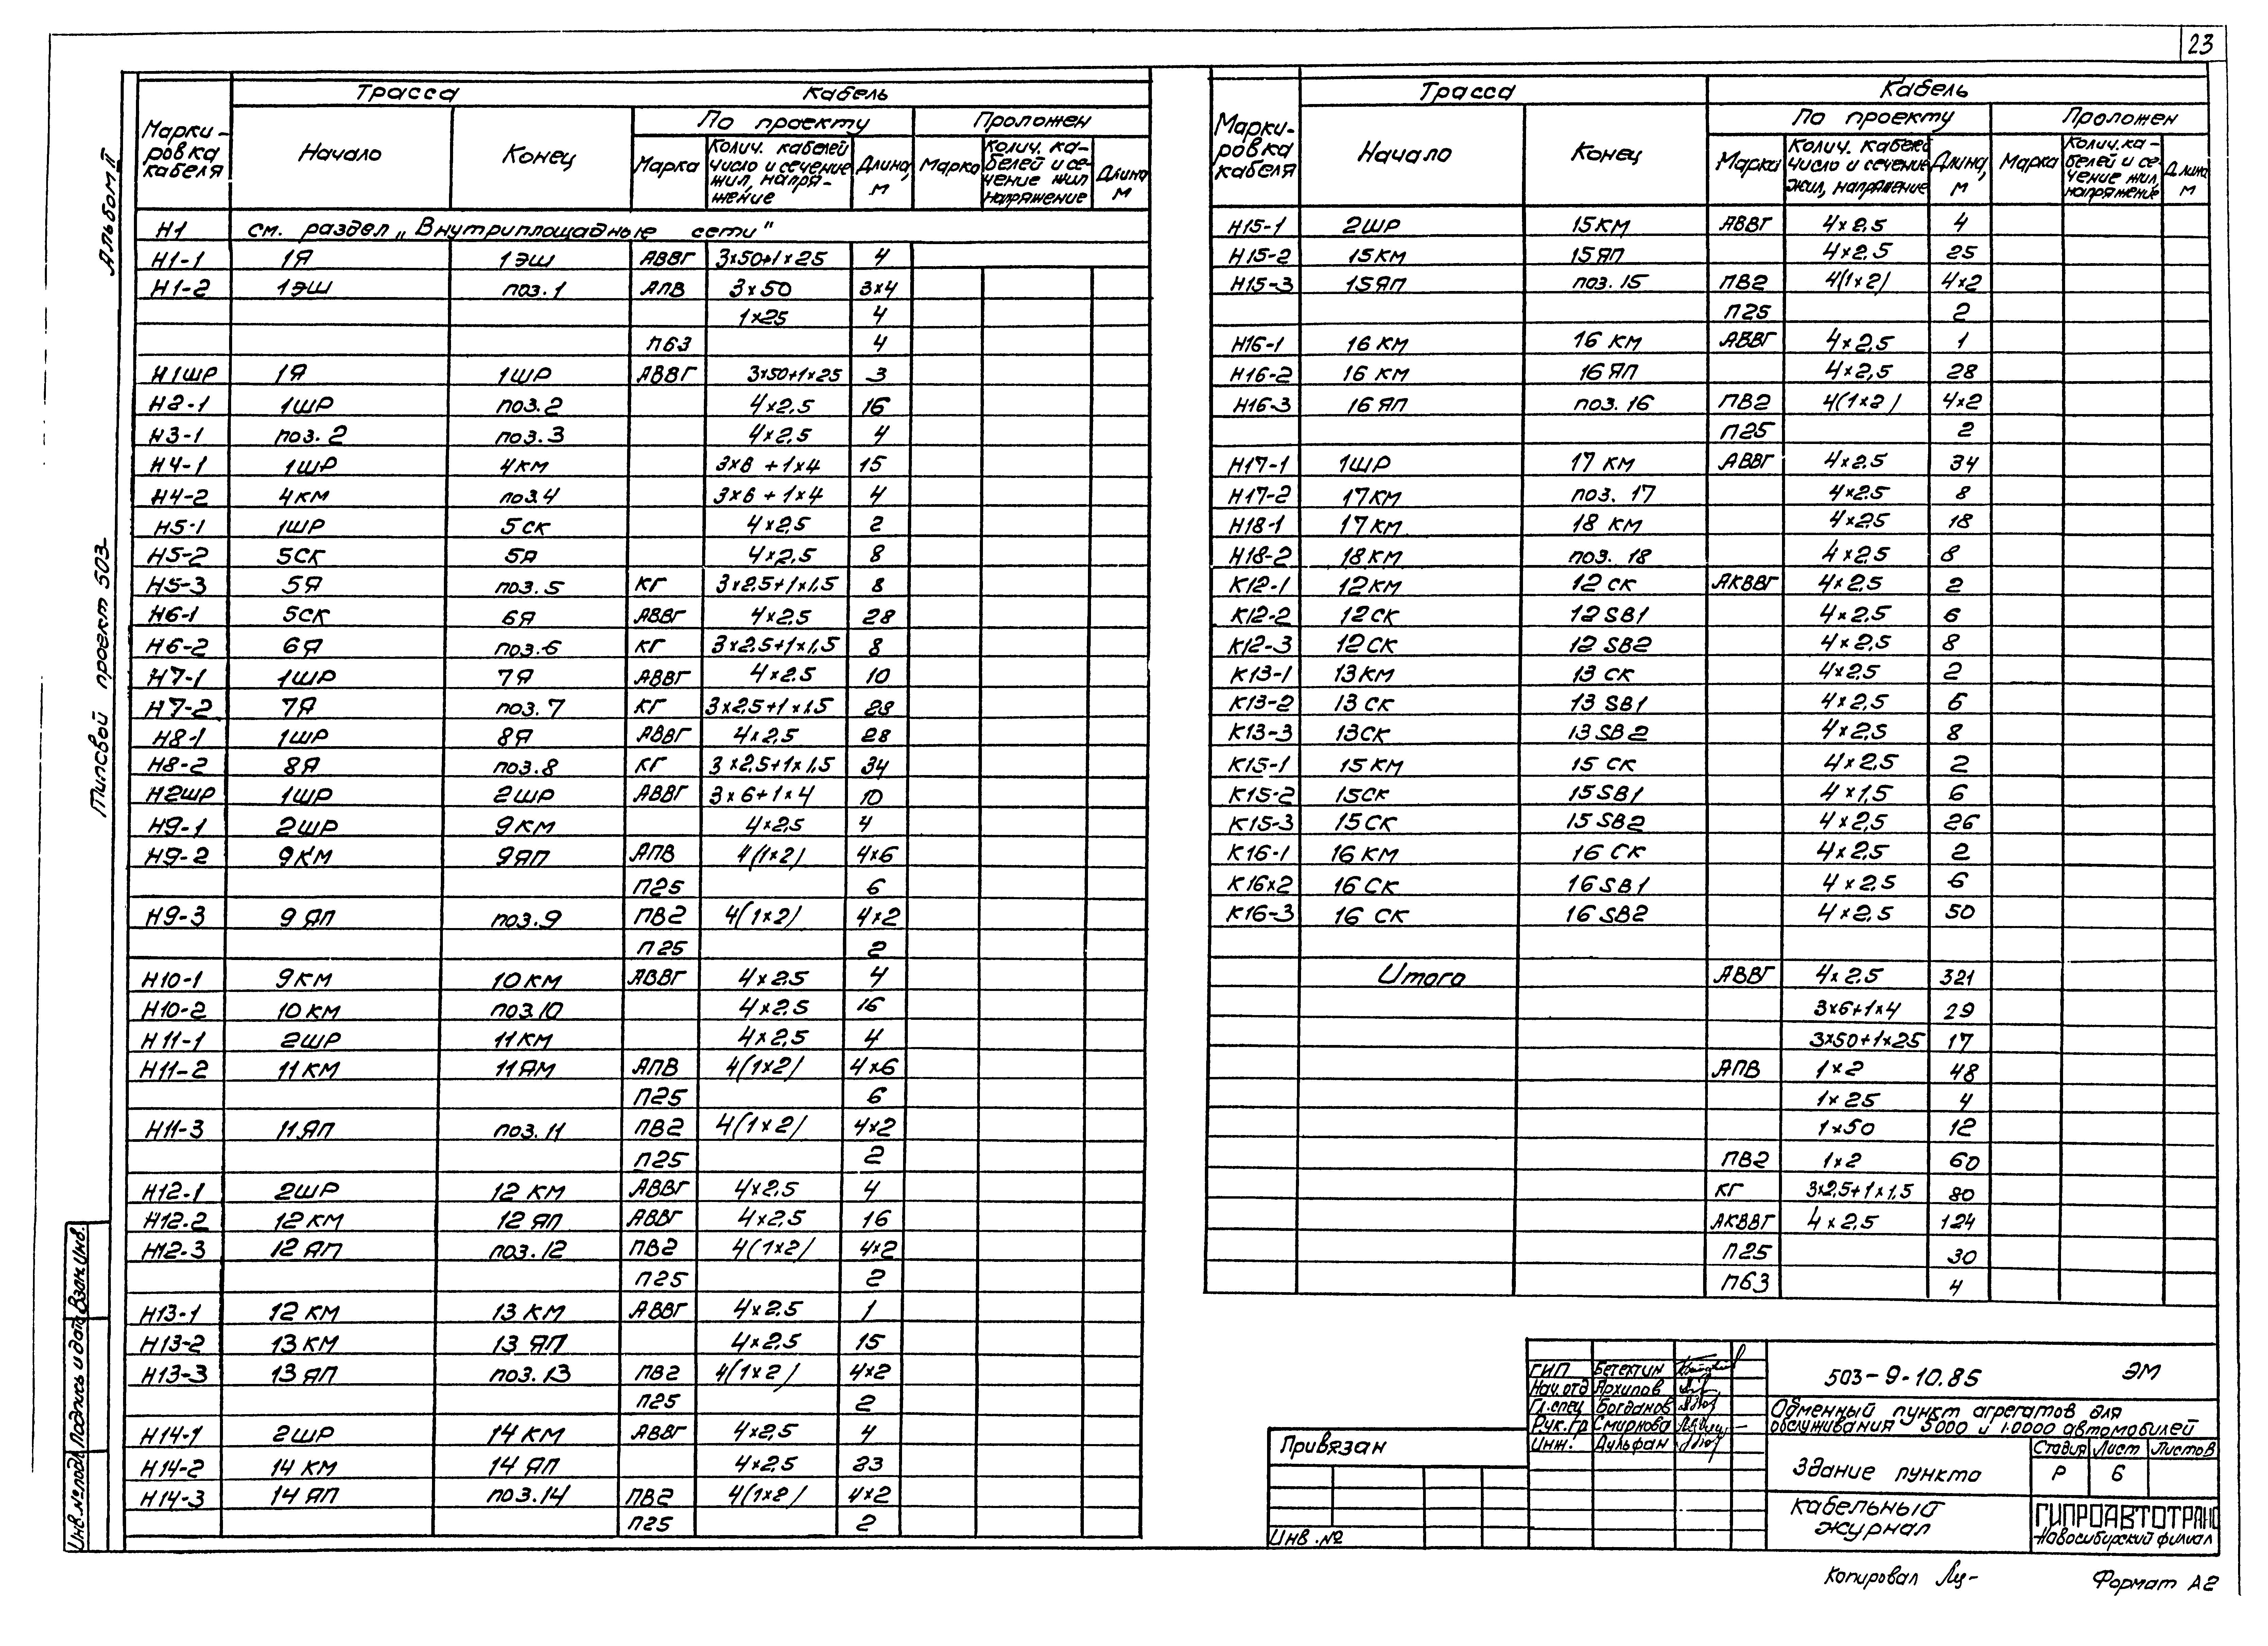 23
Альбом II
Типовой проект 503-
Марки-ровка кабеля | Трасса | Кабель
Начало | Конец | По проекту | Проложен
Марка | Колич. кабелей число и сечение жил, напряжение | Длина, м | Марка | Колич. кабелей и сечение жил напряжение | Длина м
Н1 см. раздел „Внутриплощадные сети"
Н1-1 1Я 1ЭШ АВВГ 3×50+1×25 4
Н1-2 1ЭШ поз.1 АПВ 3×50 3×4
1×25 4
П63 4
Н1ШР 1Я 1ШР АВВГ 3×50+1×25 3
Н2-1 1ШР поз.2 4×2,5 16
Н3-1 поз.2 поз.3 4×2,5 4
Н4-1 1ШР 4КМ 3×6+1×4 15
Н4-2 4КМ поз.4 3×6+1×4 4
Н5-1 1ШР 5СК 4×2,5 2
Н5-2 5СК 5Я 4×2,5 8
Н5-3 5Я поз.5 КГ 3×2,5+1×1,5 8
Н6-1 5СК 6Я АВВГ 4×2,5 28
Н6-2 6Я поз.6 КГ 3×2,5+1×1,5 8
Н7-1 1ШР 7Я АВВГ 4×2,5 10
Н7-2 7Я поз.7 КГ 3×2,5+1×1,5 28
Н8-1 1ШР 8Я АВВГ 4×2,5 28
Н8-2 8Я поз.8 КГ 3×2,5+1×1,5 34
Н2ШР 1ШР 2ШР АВВГ 3×6+1×4 10
Н9-1 2ШР 9КМ 4×2,5 4
Н9-2 9КМ 9ЯП АПВ 4(1×2) 4×6
П25 6
Н9-3 9ЯП поз.9 ПВ2 4(1×2) 4×2
П25 2
Н10-1 9КМ 10КМ АВВГ 4×2,5 4
Н10-2 10КМ поз.10 4×2,5 16
Н11-1 2ШР 11КМ 4×2,5 4
Н11-2 11КМ 11ЯМ АПВ 4(1×2) 4×6
П25 6
Н11-3 11ЯП поз.11 ПВ2 4(1×2) 4×2
П25 2
Н12-1 2ШР 12КМ АВВГ 4×2,5 4
Н12-2 12КМ 12ЯП АВВГ 4×2,5 16
Н12-3 12ЯП поз.12 ПВ2 4(1×2) 4×2
П25 2
Н13-1 12КМ 13КМ АВВГ 4×2,5 1
Н13-2 13КМ 13ЯП 4×2,5 15
Н13-3 13ЯП поз.13 ПВ2 4(1×2) 4×2
П25 2
Н14-1 2ШР 14КМ АВВГ 4×2,5 4
Н14-2 14КМ 14ЯП 4×2,5 23
Н14-3 14ЯП поз.14 ПВ2 4(1×2) 4×2
П25 2
Марки-ровка кабеля | Трасса | Кабель
Начало | Конец | По проекту | Проложен
Марка | Колич. кабелей число и сечение жил, напряжение | Длина, м | Марка | Колич. кабелей и сечение жил напряжение | Длина м
Н15-1 2ШР 15КМ АВВГ 4×2,5 4
Н15-2 15КМ 15ЯП 4×2,5 25
Н15-3 15ЯП поз.15 ПВ2 4(1×2) 4×2
П25 2
Н16-1 16КМ 16КМ АВВГ 4×2,5 1
Н16-2 16КМ 16ЯП 4×2,5 28
Н16-3 16ЯП поз.16 ПВ2 4(1×2) 4×2
П25 2
Н17-1 1ШР 17КМ АВВГ 4×2,5 34
Н17-2 17КМ поз.17 4×2,5 8
Н18-1 17КМ 18КМ 4×2,5 18
Н18-2 18КМ поз.18 4×2,5 8
К12-1 12КМ 12СК АКВВГ 4×2,5 2
К12-2 12СК 12SB1 4×2,5 6
К12-3 12СК 12SB2 4×2,5 8
К13-1 13КМ 13СК 4×2,5 2
К13-2 13СК 13SB1 4×2,5 6
К13-3 13СК 13SB2 4×2,5 8
К15-1 15КМ 15СК 4×2,5 2
К15-2 15СК 15SB1 4×1,5 6
К15-3 15СК 15SB2 4×2,5 26
К16-1 16КМ 16СК 4×2,5 2
К16×2 16СК 16SB1 4×2,5 6
К16-3 16СК 16SB2 4×2,5 50
Итого АВВГ 4×2,5 321
3×6+1×4 29
3×50+1×25 17
АПВ 1×2 48
1×25 4
1×50 12
ПВ2 1×2 60
КГ 3×2,5+1×1,5 80
АКВВГ 4×2,5 124
П25 30
П63 4
Инв.№подл Подпись и дата Взам.Инв.
Привязан
Инв.№
ГИП Бегектин
Нач.отд Архипов
Гл.спец Богданов
Рук.гр Смирнова
Инж. Дульфан
503-9-10.85 ЭМ
Обменный пункт агрегатов для
обслуживания 5000 и 10000 автомобилей
Здание пункта
Стадия Лист Листов
Р 6
Кабельный
журнал
ГИПРОАВТОТРАНС
Новосибирский филиал
Копировал
Формат А2